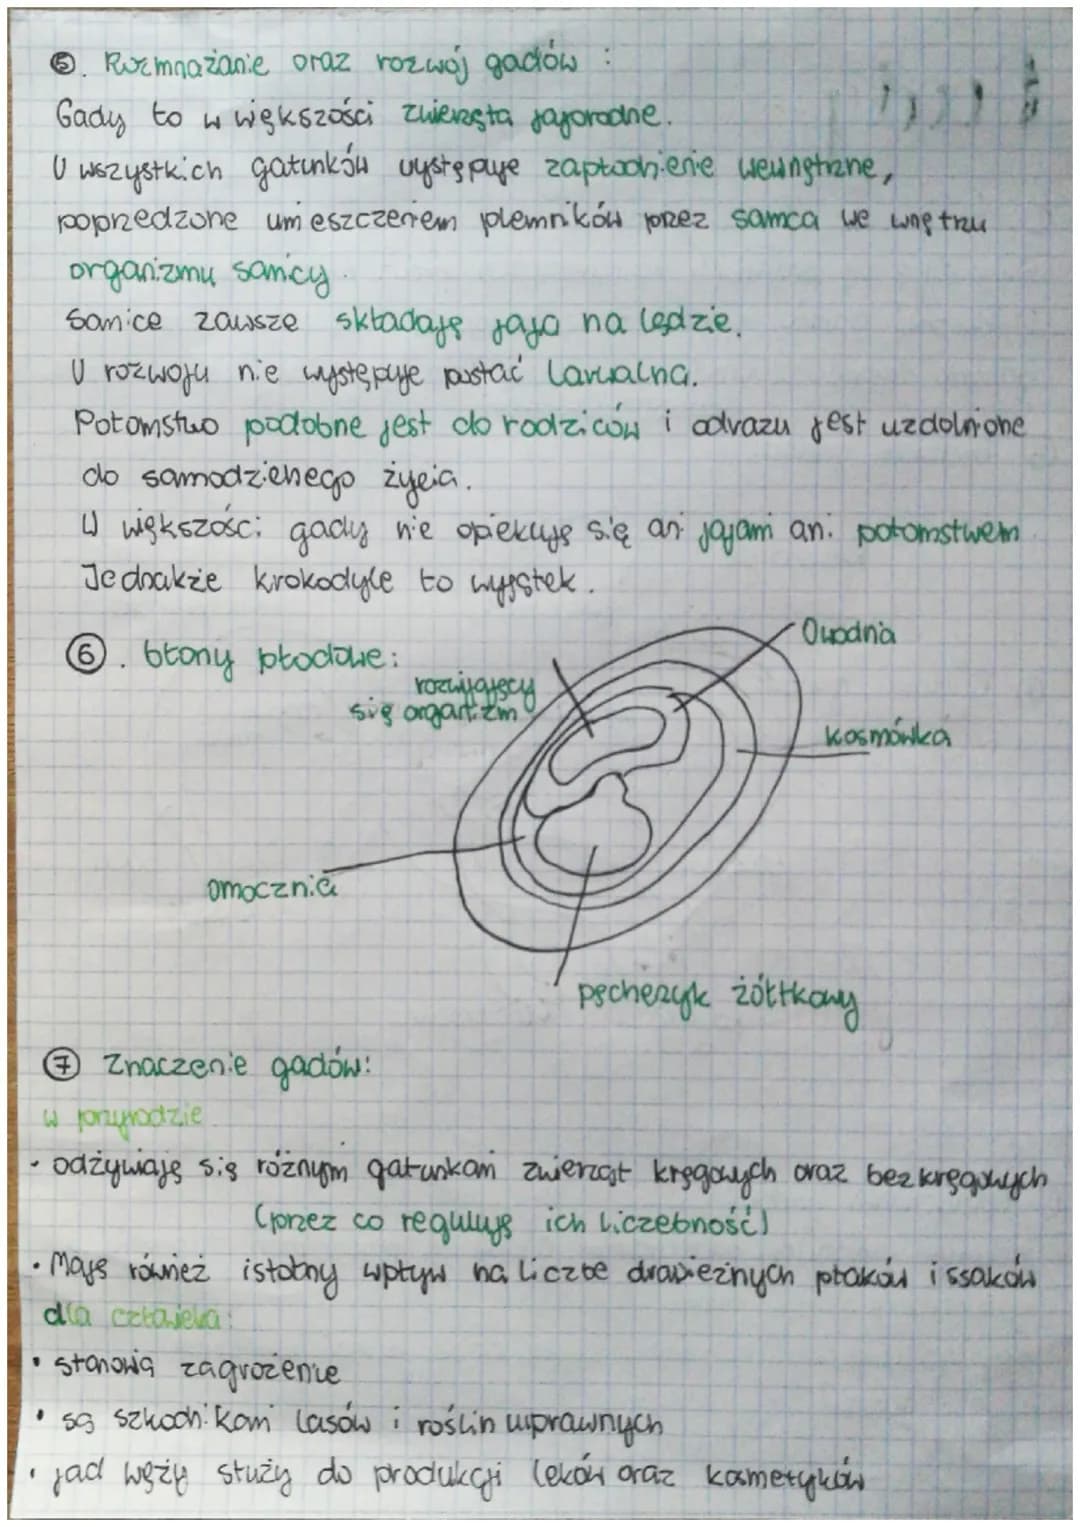 ⑤. Rozmnażanie oraz rozwój gadów :
Gady to w większości zwierzęta jajorodne.
U wszystkich gatunków występuje zapłodnienie wewnętrzne,
poprzedzone umieszczeniem plemników przez samca we wnętrzu
organizmu samicy.
Samice zawsze składają jaja na lądzie.
U rozwoju nie występuje postać larwalna.
Potomstwo podobne jest do rodziców i odrazu jest uzdolnione
do samodzielnego życia.
W większości gady nie opiekują się ani jajami ani potomstwem
Jednakże krokodyle to wyjątek.
⑥. błony płodowe:
Owodnia
rozwijający
się organizm
kosmówka
omocznia
pęcherzyk żółtkowy
⑦ Znaczenie gadów:
w przyrodzie
· odżywiają się różnym gatunkam zwierząt kręgowych oraz bezkręgowych
(przez co regulują ich liczebność)
· Mają również istotny wpływ na liczbe drapieżnych ptaków i ssaków
dla człowieka:
· stanowią zagrożenie
· są szkodnikami lasów i roślin uprawnych
· jad węży służy do produkcji leków oraz kosmetyków